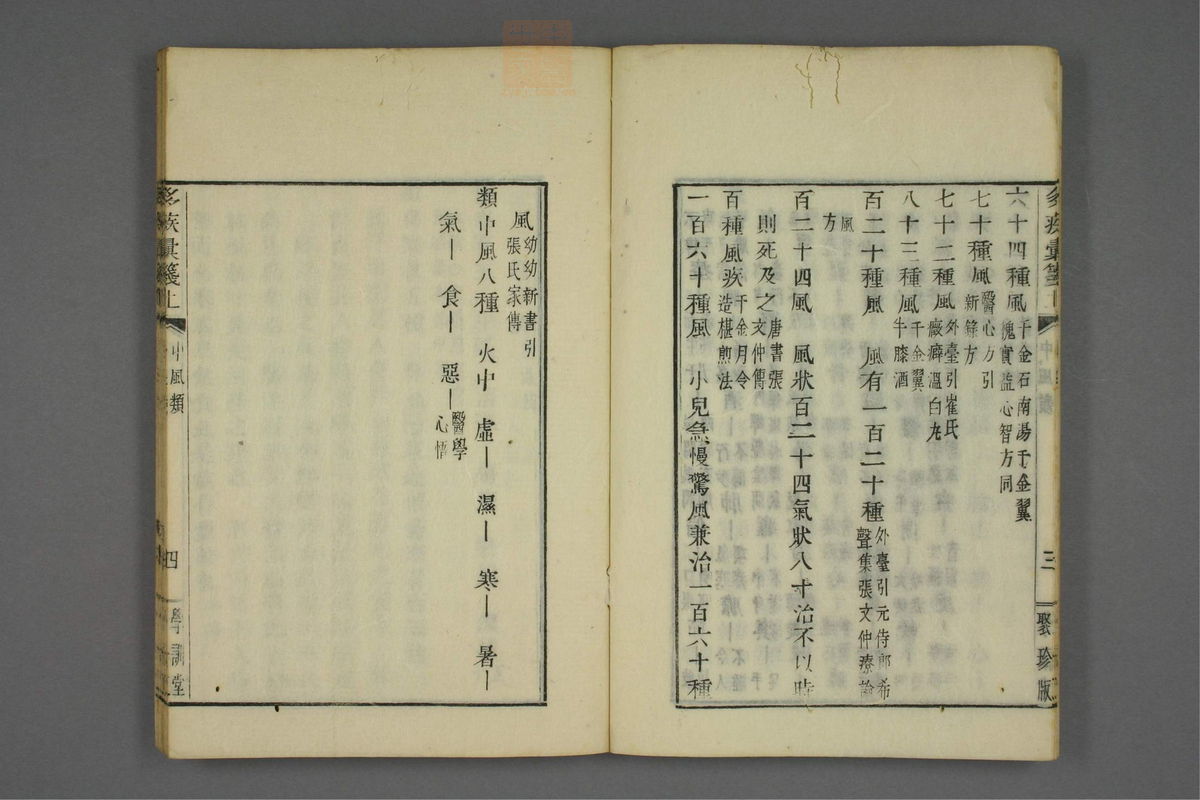 六十四種風 千金石南湯千金翼槐實益心智方同
七十種風 醫心方引新錄方
七十二種風 外臺引崔氏癥癖溫白丸
八十三種風 千金翼牛膝酒
百二十種風 風有一百二十種 外臺引元侍郎希聲集張文仲療諸
風方
百二十四風 風狀百二十四氣狀八十治不以時
則死及之 唐書張文仲傳
百種風疾 千金月令造椹煎法
一百六十種風 小兒急慢驚風兼治一百六十種
疾彙箋上
三
聚珍版
風 幼幼新書引張氏家傳
類中風八種 火中 虛— 濕— 寒— 暑—
氣— 食— 惡— 醫學心悟
疾彙箋上
中風類
四
學訓堂